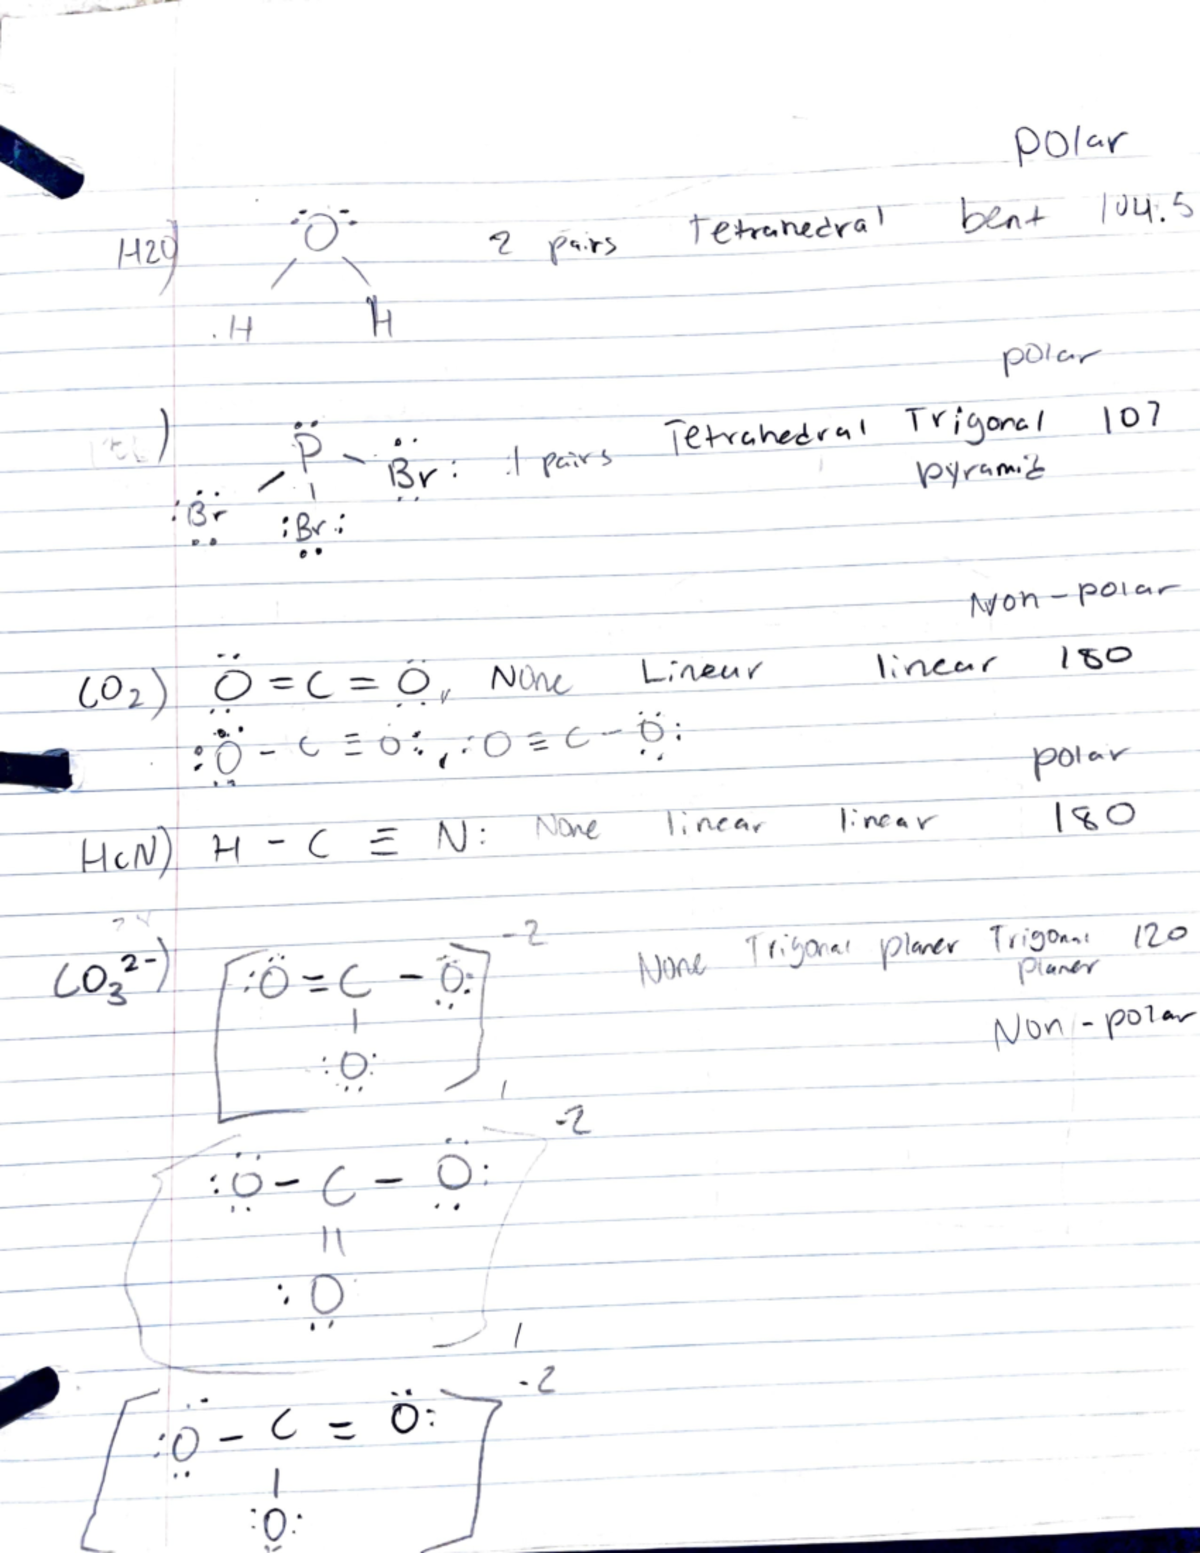 polar
H2O) :Ö: 2 pairs Tetrahedral bent 104.5
H H
polar
) P̈ - Br: 1 pairs Tetrahedral Trigonal 107
:Br :Br: pyramid
Non-polar
CO2) Ö = C = Ö, None Linear linear 180
:Ö - C ≡ O:, :O ≡ C - Ö:
polar
HCN) H - C ≡ N: None linear linear 180
CO3²⁻) [:Ö = C - Ö:]-2 None Trigonal planer Trigonal 120
planer
:O: Non-polar
-2
:Ö - C - Ö:
||
:O
-2
:Ö - C = Ö:
|
:O: